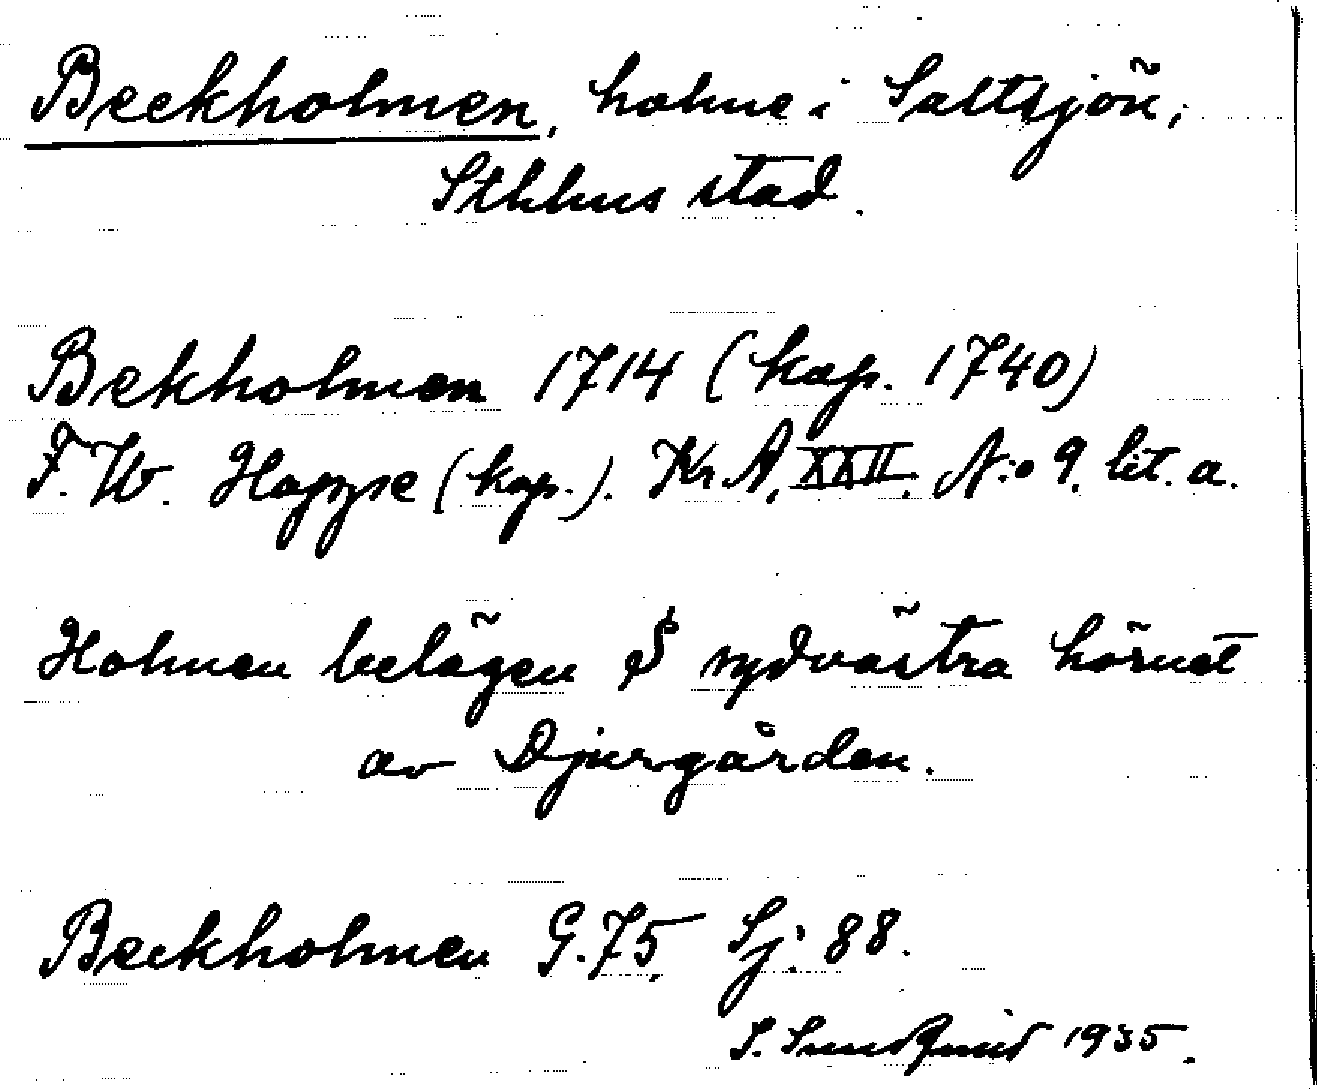 Beckholmen, holme i Saltsjön,
Sthlms stad.
Bekholmen 1714 (kop. 1740)
F. W. Happe (kop.). Kr.A. XXII. N:o 9. lit. a.
Holmen belägen sydvästra hörnet
av Djurgården.
Beckholmen G.75. Sj: 88.
S. Sundquist 1935.